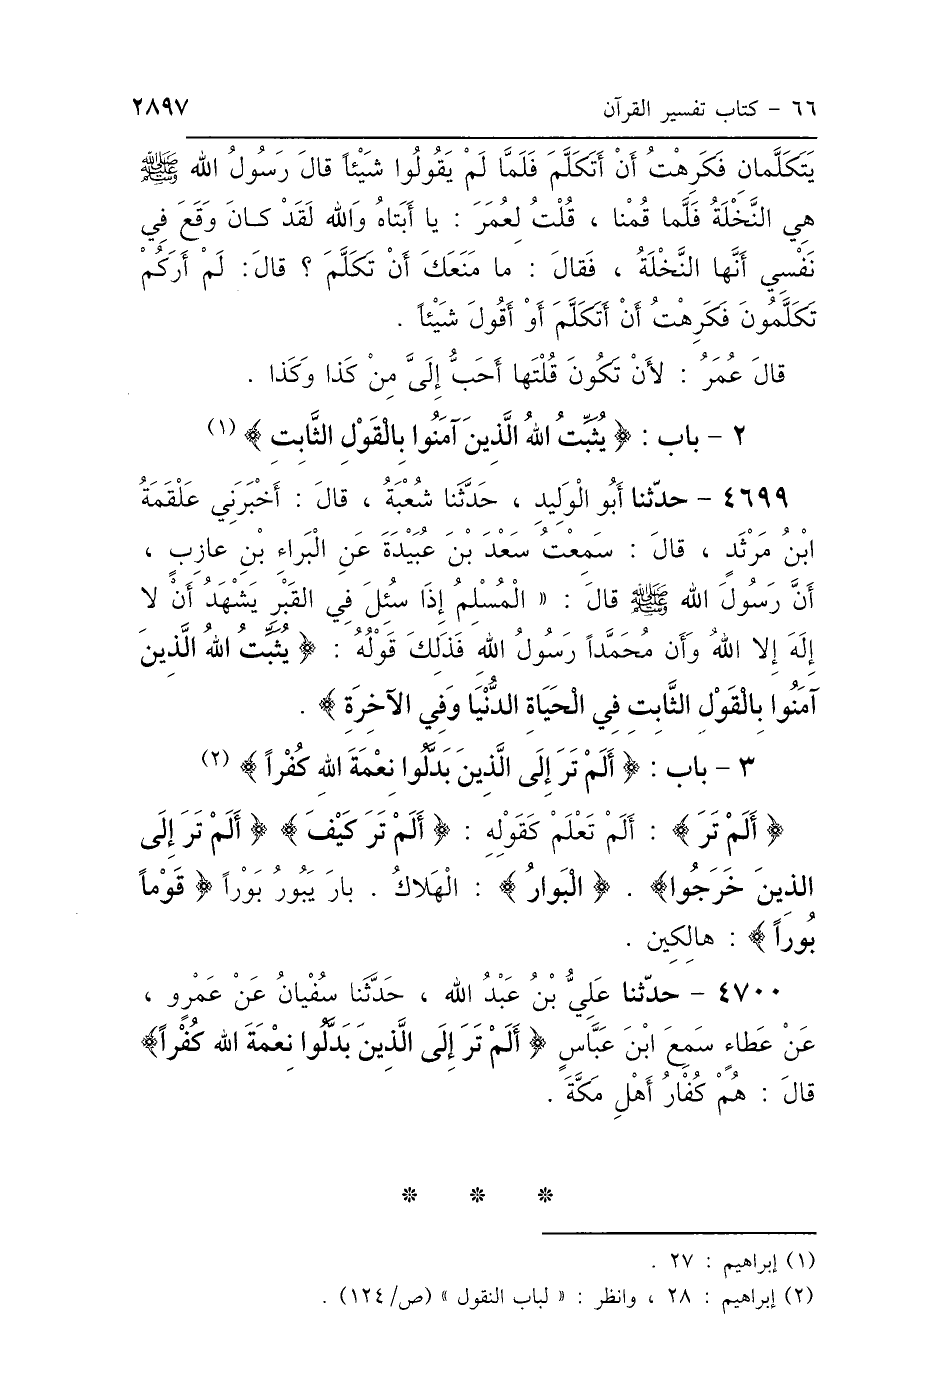 ٦٦ - كتاب تفسير القرآن ٢٨٩٧
يَتَكَلَّمانِ فَكَرِهْتُ أَنْ أَتَكَلَّمَ فَلَمَّا لَمْ يَقُولُوا شَيْئاً قالَ رَسُولُ الله ﷺ
هِي النَّخْلَةُ فَلَّما قُمْنا ، قُلْتُ لعُمَرَ : يا أَبَتاهُ وَالله لَقَدْ كـانَ وَقَعَ فِي
نَفْسِي أَنَّها النَّخْلَةُ ، فَقالَ : ما مَنَعَكَ أَنْ تَكَلَّمَ ؟ قالَ: لَمْ أَرَكُمْ
تَكَلَّمُونَ فَكَرِهْتُ أَنْ أَتَكَلَّمَ أَوْ أَقُولَ شَيْئاً .
قالَ عُمَرُ : لأَنْ تَكُونَ قُلْتَها أَحَبُّ إِلَىَّ مِنْ كَذا وَكَذا .
٢ - باب : ﴿ يُثَبِّتُ اللهُ الَّذِينَ آمَنُوا بِالْقَوْلِ الثَّابِتِ ﴾ (١)
٤٦٩٩ - حدّثنا أَبُو الْوَلِيدِ ، حَدَّثَنا شُعْبَةُ ، قالَ : أَخْبَرَنِي عَلْقَمَةُ
ابْنُ مَرْثَدٍ ، قالَ : سَمِعْتُ سَعْدَ بْنَ عُبَيْدَةَ عَنِ الْبَراءِ بْنِ عازِبٍ ،
أَنَّ رَسُولَ الله ﷺ قالَ : « الْمُسْلِمُ إِذَا سُئِلَ فِي القَبْرِ يَشْهَدُ أَنْ لا
إِلَهَ إِلا اللهُ وَأَن مُحَمَّداً رَسُولُ الله فَذلِكَ قَوْلُهُ : ﴿ يُثَبِّتُ اللهُ الَّذِينَ
آمَنُوا بِالْقَوْلِ الثَّابِتِ فِي الْحَيَاةِ الدُّنْيَا وَفِي الآخِرَةِ ﴾ .
٣ - باب : ﴿ أَلَمْ تَرَ إِلَى الَّذِينَ بَدَّلُوا نِعْمَةَ الله كُفْراً ﴾ (٢)
﴿ أَلَمْ تَرَ ﴾ : أَلَمْ تَعْلَمْ كَقَوْلِهِ : ﴿ أَلَمْ تَرَ كَيْفَ ﴾ ﴿ أَلَمْ تَرَ إِلَى
الذينَ خَرَجُوا﴾ . ﴿ الْبَوارُ ﴾ : الْهَلاكُ . بارَ يَبُورُ بَوْراً ﴿ قَوْماً
بُوراً ﴾ : هالِكِين .
٤٧٠٠ - حدّثنا عَلِيُّ بْنُ عَبْدُ الله ، حَدَّثَنا سُفْيانُ عَنْ عَمْرٍو ،
عَنْ عَطاءٍ سَمِعَ ابْنَ عَبَّاسٍ ﴿ أَلَمْ تَرَ إِلَى الَّذِينَ بَدَّلُوا نِعْمَةَ الله كُفْراً﴾
قالَ : هُمْ كُفَّارُ أَهْلِ مَكَّةَ .
* * *
(١) إبراهيم : ٢٧ .
(٢) إبراهيم : ٢٨ ، وانظر : « لباب النقول » (ص/١٢٤) .